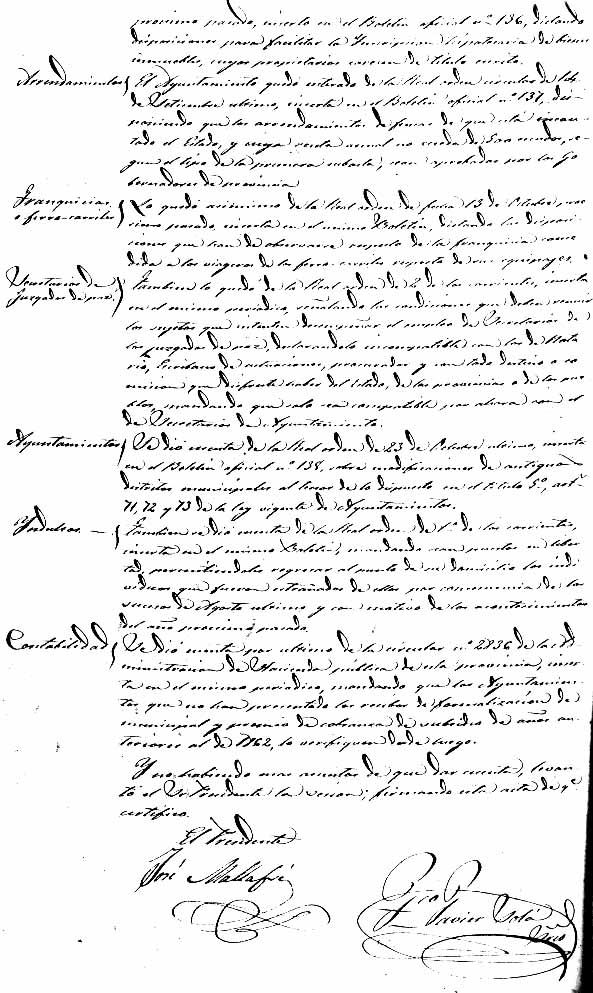 procsimo pasado, inserta en el Boletin oficial nº 136, dictando
disposiciones para facilitar la Inscripcion hipotecaria de bienes
inmuebles, cuyos propietarios carecen de titulo escrito.
Arrendamientos } El Ayuntamiento quedó enterado de la Real orden circular de
de Setiembre ultimo, inserta en el Boletin oficial nº 137, dis-
poniendo que los arrendamientos de fincas de que está incau-
tado el Estado, y cuya renta anual no esceda de escudos, se-
gun el tipo de la primera subasta, sean aprobados por los Go-
bernadores de provincia
Franquicias
o ferro-carriles } Lo quedó asimismo de la Real orden de fecha 13 de Octubre, proc-
simo pasado, inserta en el mismo Boletin, dictando las disposi-
ciones que han de observarse respecto de la franquicia conce-
dida a los viageros de los ferro-carriles respecto de sus equipages.
Secretarios de
Juzgados de paz. } Tambien lo quedó de la Real orden de 2 de los corrientes, inserta
en el mismo periodico, señalando las condiciones que deben reunir
los sujetos que intenten desempeñar el empleo de Secretarios de
los juzgados de paz, declarandolo incompatible con los de Nota-
rio, Escribano de actuaciones, procurador y con todo destino o co-
mision que disfrute haber del Estado, de las provincias o de los pue-
blos, mandando que solo sea compatible por ahora con el
de Secretarios de Ayuntamiento.
Ayuntamientos } Se dió cuenta de la Real orden de 23 de Octubre ultimo, inserta
en el Boletin oficial nº 138, sobre modificaciones de antiguos
distritos municipales al tenor de lo dispuesto en el titulo 5º, artº
71, 72 y 73 de la ley vigente de Ayuntamientos.
Yndultos. — } Tambien se dió cuenta de la Real orden de 1º de los corrientes,
inserta en el mismo Boletin, mandando sean puestos en liber-
tad, permitiendoles regresar al punto de su domicilio los indi-
viduos que fueron estrañados de ellos por consecuencia de los
sucesos de Agosto ultimo y con motivo de los acontecimientos
del año procsimo pasado.
Contabilidad } Se dió cuenta por ultimo de la circular nº 2836 de la Ad-
ministracion de Hacienda pública de esta provincia, inser-
ta en el mismo periodico, mandando que los Ayuntamien-
tos, que no han presentado los recibos de formalizacion de
municipal y premio de cobranza de subsidio de años an-
teriores al de 1862, lo verifiquen desde luego.
Y no habiendo mas asuntos de que dar cuenta, levan-
tó el Sr Presidente la sesion; firmando esta acta de qº
certifico.
El Presidente
José Mallafré
Javier Solá
Srio